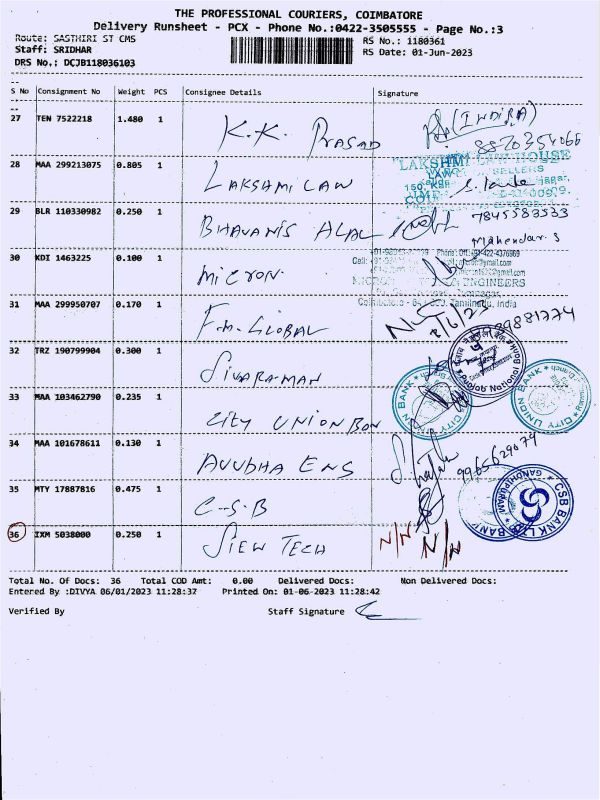 THE PROFESSIONAL COURIERS, COIMBATORE
Delivery Runsheet - PCX - Phone No.:0422-3505555 - Page No.:3
Route: SASTHIRI ST CMS
RS No.: 1180361
Staff: SRIDHAR
RS Date: 01-Jun-2023
DRS No.: DCJB118036103
S No Consignment No Weight PCS Consignee Details Signature
27 TEN 7522218 1.480 1 K.K. PRASAD (INDIRA)
28 MAA 299213075 0.805 1 LAKSHMI LAW LAKSHMI LAW HOUSE
SELLERS
29 BLR 110330982 0.250 1 BHAVANIS ALAL 7845583533
Mahendar.S
30 KDI 1463225 0.100 1 MICRON
ENGINEERS
Tamilnadu, India
31 MAA 299950707 0.170 1 F.M. GLOBAL
32 TRZ 190799904 0.300 1 SIVARAMAN
Punjab National Bank
33 MAA 103462790 0.235 1 CITY UNION BAN
CITY UNION BANK
34 MAA 101678611 0.130 1 AVUDHA ENS 9965629079
35 MTY 17887816 0.475 1 C-S-B
CSB BANK LTD
GANDHIPURAM
36 IXM 5038000 0.250 1 SIEW TECH N/N N/N
Total No. Of Docs: 36 Total COD Amt: 0.00 Delivered Docs: Non Delivered Docs:
Entered By :DIVYA 06/01/2023 11:28:37 Printed On: 01-06-2023 11:28:42
Verified By Staff Signature